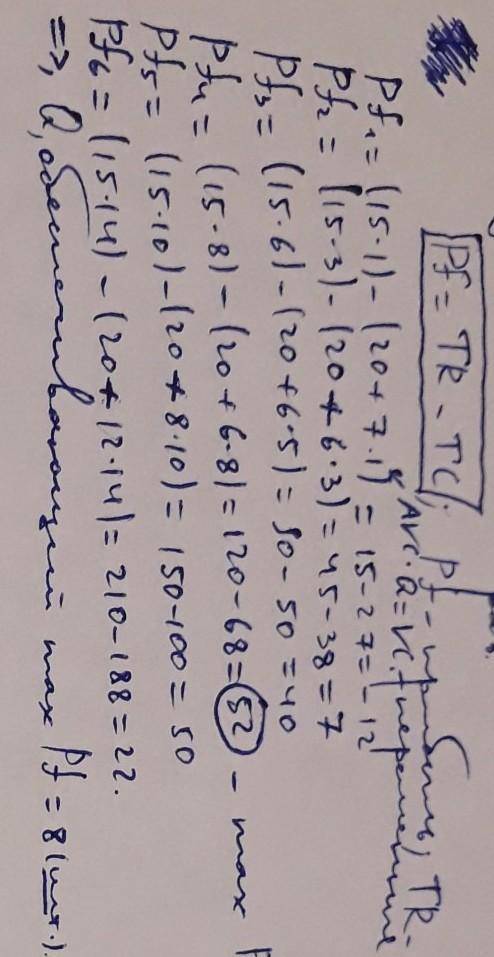 Pf = TR - TC; Pf - прибыль, TR -
AVC·Q = VC - переменные
Pf₁ = (15·1) - (20 + 7·1) = 15 - 27 = -12
Pf₂ = (15·3) - (20 + 6·3) = 45 - 38 = 7
Pf₃ = (15·6) - (20 + 6·5) = 90 - 50 = 40
Pf₄ = (15·8) - (20 + 6·8) = 120 - 68 = 52 - max P
Pf₅ = (15·10) - (20 + 8·10) = 150 - 100 = 50
Pf₆ = (15·14) - (20 + 12·14) = 210 - 188 = 22.
=>, Q, обеспечивающий max Pf = 8 (шт.).